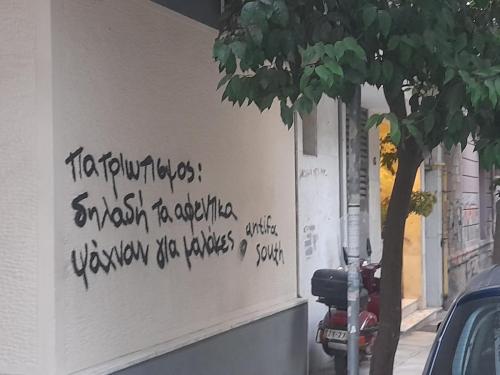 Πατριωτισμος:
δηλαδή τα αφεντικα
ψάχναν για μαλάκες
antifa
south